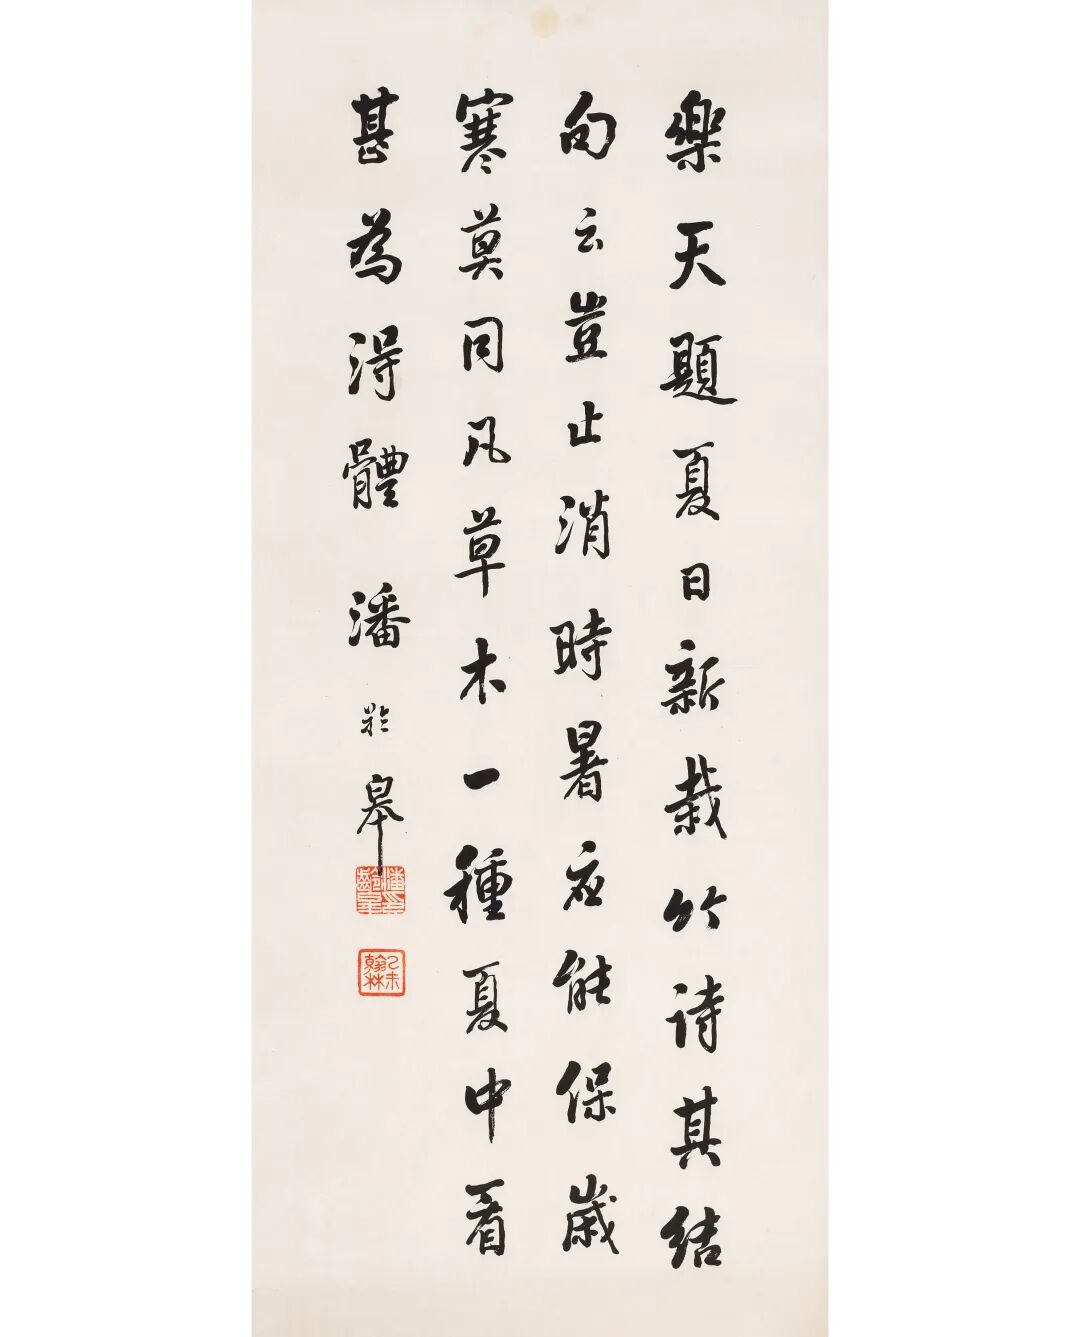 樂天題夏日新栽竹诗其结
句云豈止消時暑应能保歲
寒莫同凡草木一種夏中看
甚為淂體 潘齡皋
潘齡皋印
乙未翰林